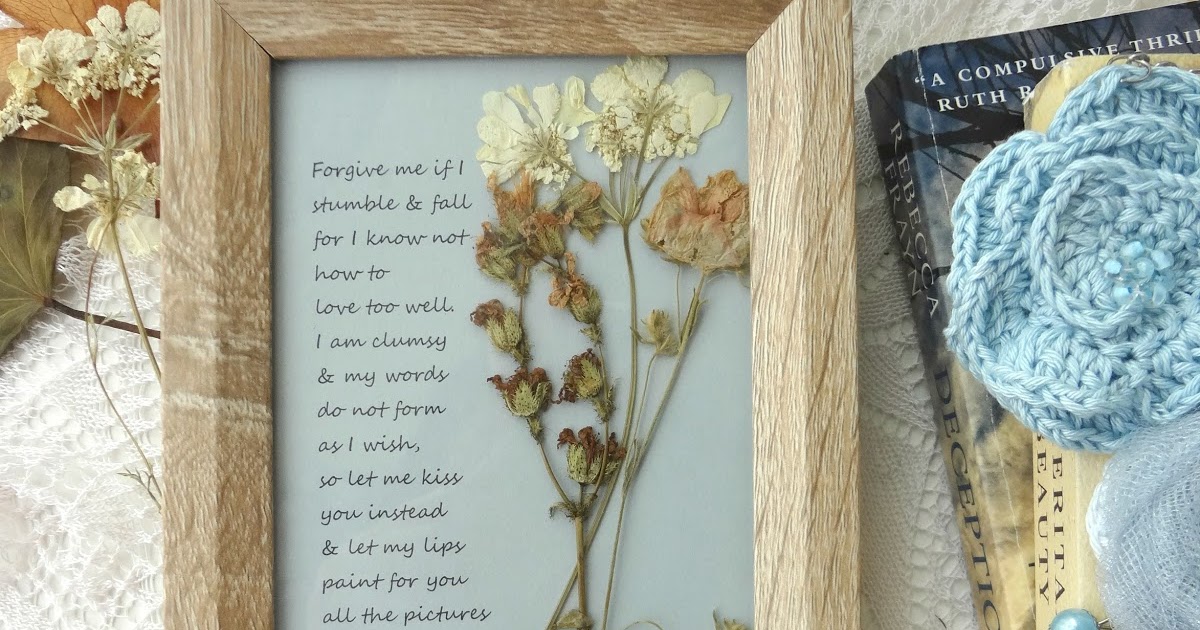 Forgive me if I
stumble & fall
for I know not
how to
love too well.
I am clumsy
& my words
do not form
as I wish,
so let me kiss
you instead
& let my lips
paint for you
all the pictures
“A COMPULSIVE THRI
RUTH R
REBECCA
FRAYN
DECEPTIO
ERITA
EAUTY